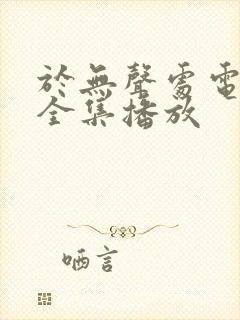 於無聲處電
全集播放
哂言